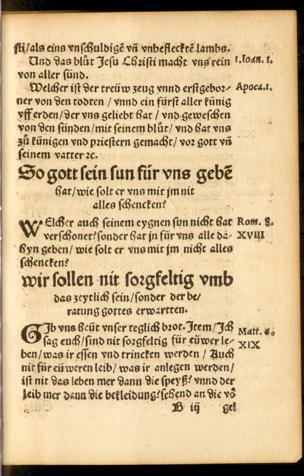 sti/als eins vnschuldigẽ vñ vnbeflecktẽ lambs.
Und das blůt Jesu Christi macht vns rein 1.Ioan. 1.
von aller sünd.
Welcher ist der treüw zeug vnnd erstgebor- Apoca.1.
ner von den todten / vnnd ein fürst aller künig
vff erden/ der vns geliebt hat / vnd geweschen
von den sünden/ mit seinem blůt/ vnd hat vns
zů künigen vnd priestern gemacht/ vor gott vñ
seinem vatter ꝛc.
So gott sein sun für vns gebẽ
hat/wie solt er vns mit jm nit
alles schencken?
WElcher auch seinem eygnen sun nicht hat Rom. 8.
verschonet? sonder hat jn für vns alle da- XVIII
hyn geben/ wie solt er vns mit jm nicht alles
schencken?
wir sollen nit sorgfeltig vmb
das zeytlich sein/sonder der be-
ratung gottes erwarten.
GIb vns heüt vnser teglich brot. Item/ Ich Matt. 6.
sag euch/sind nit sorgfeltig für eüwer le- XIX
ben/was ir essen vnd trincken werden / Auch
nit für eüweren leib/ was ir anlegen werden/
ist nit das leben mer dann die speyß? vnnd der
leib mer dann die bekleidung? sehend an die vö
B iij gel